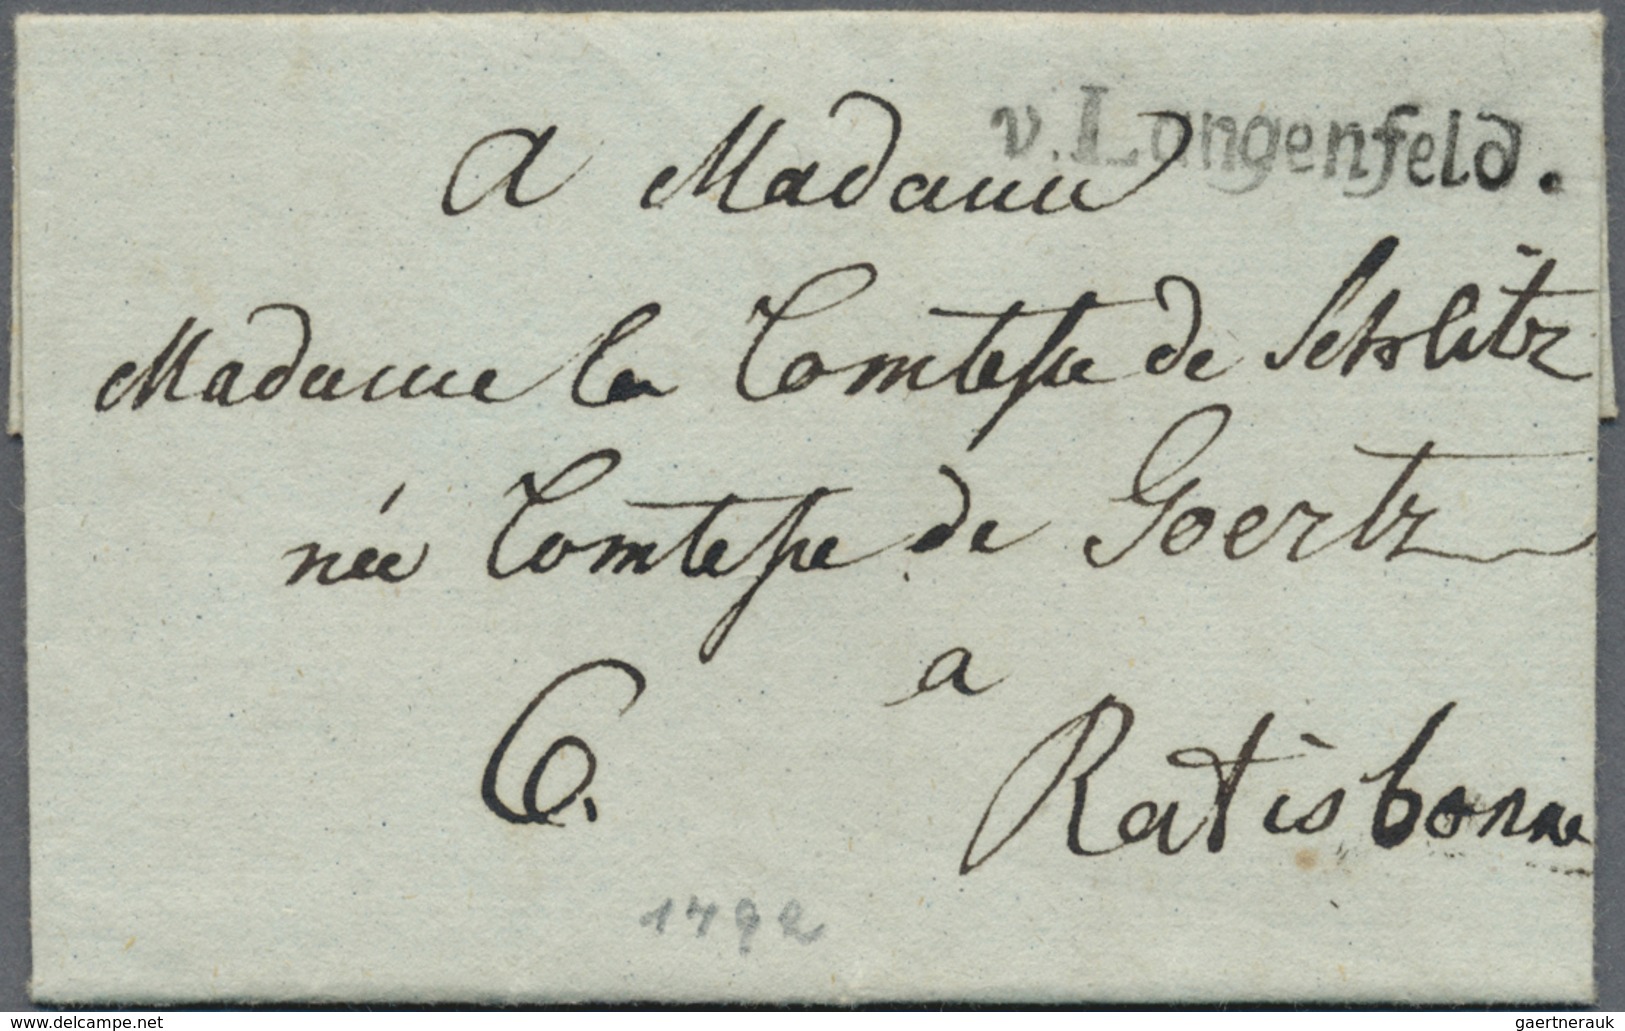 v. Langenfeld.
A Madame
Madame la Comtesse de Schlitz
née Comtesse de Goertz
a
6.
Ratisbonne
1792
delcampe.net
gaertnerauk